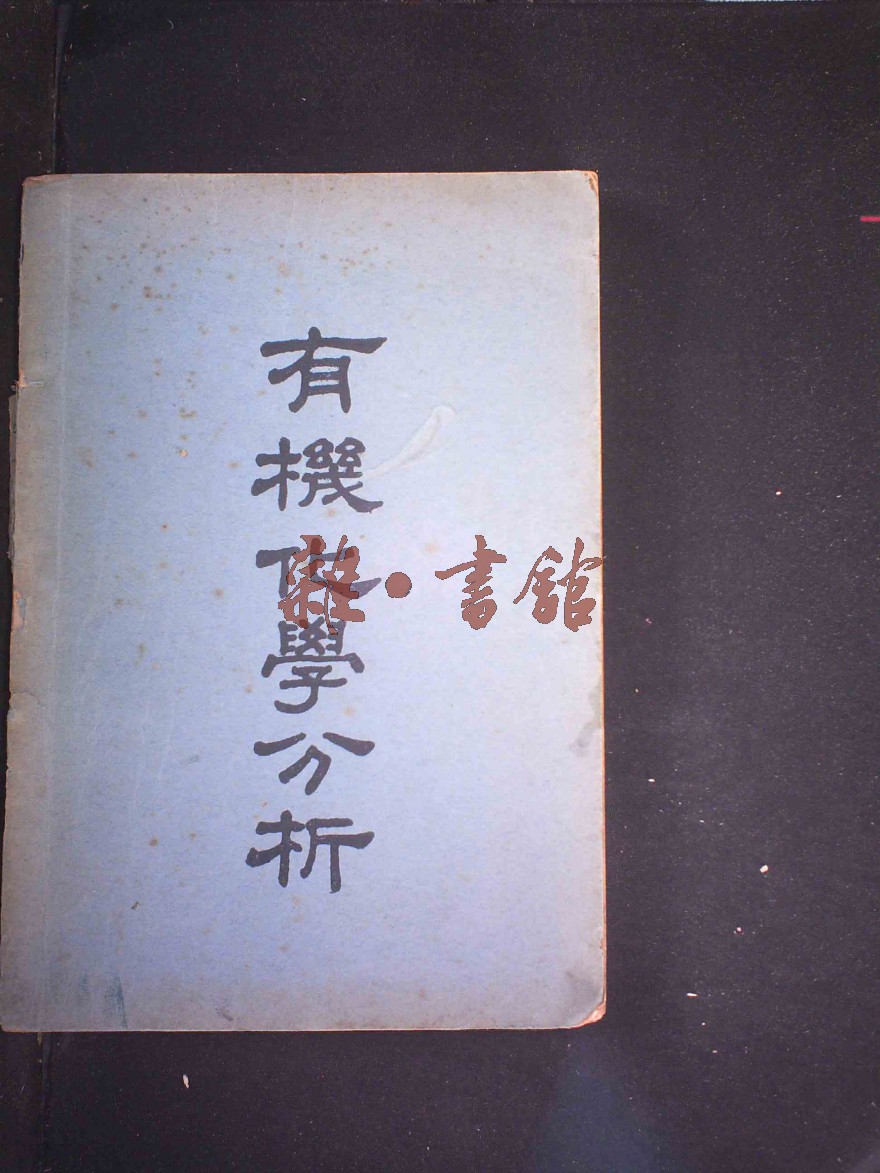 有機化學分析
雜·書館